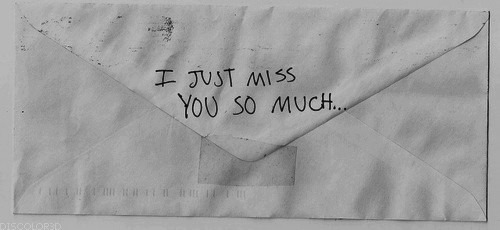 I JUST MISS
YOU SO MUCH...
DISCOLORED